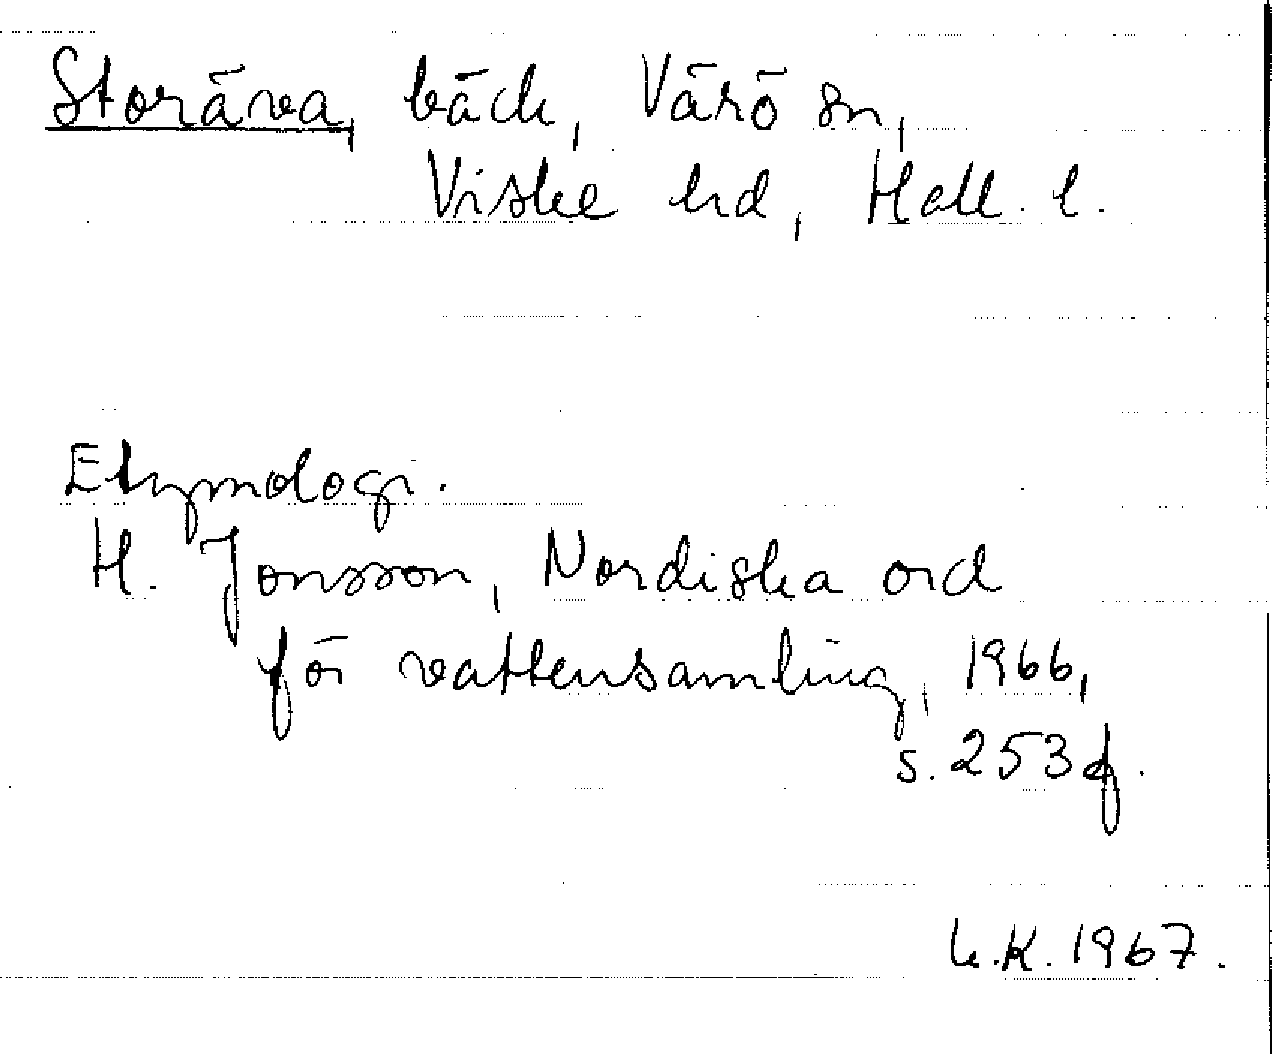 Storäva, bäck, Värö sn,
Viske hd, Hall. l.
Etymologi.
H. Jonsson, Nordiska ord
för vattensamling, 1966,
s. 253 f.
L.K. 1967.